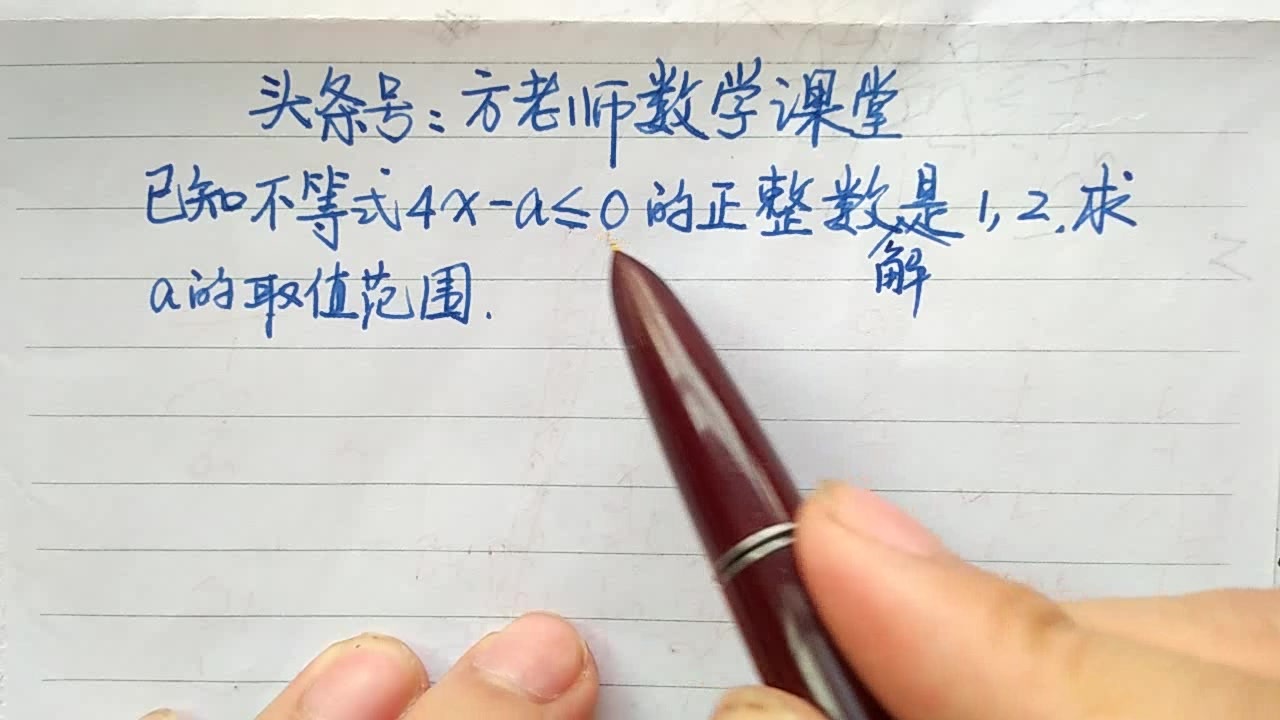 头条号：方老师数学课堂
已知不等式4x-a≤0的正整数解是1,2.求
a的取值范围.